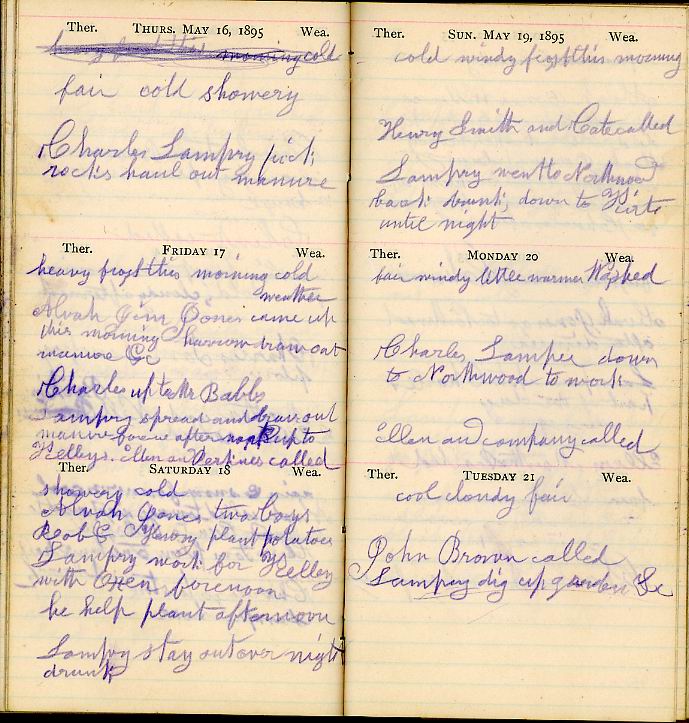 Ther. THURS. MAY 16, 1895 Wea.
morning cold
fair cold showery
Charles Lampry pick
rocks haul out manure
Ther. FRIDAY 17 Wea.
heavy frost this morning cold
weather
Alvah Jim Jones came up
this morning harrow draw out
manure &c
Charles up to Mr Babbs
Lampry spread and draw out
manure after up to
Kelleys. Ellen and called
Ther. SATURDAY 18 Wea.
showery cold
Alvah Jones two boys
Rob & Henry plant potatoes
Lampry work for Kelley
with oxen forenoon
he help plant afternoon
Lampry stay out over night
drunk
Ther. SUN. MAY 19, 1895 Wea.
cold windy frost this morning
Henry Smith and Cate called
Lampry went to Northwood
back drunk, down to
until night
Ther. MONDAY 20 Wea.
fair windy little warmer Washed
Charles, Lampre down
to Northwood to work
Ellen and company called
Ther. TUESDAY 21 Wea.
cool cloudy fair
John Brown called
Lampry dig up garden &c